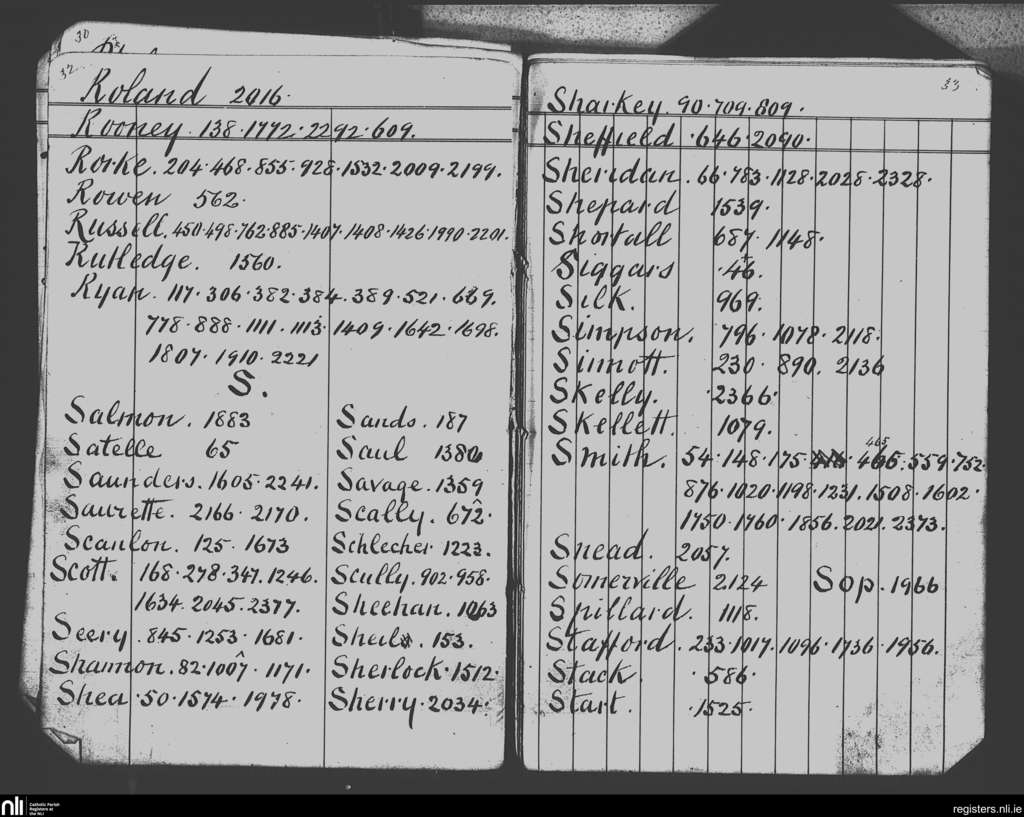 30
32
Roland 2016.
Rooney. 138.1772.2292.609.
Rorke. 204.468.855.928.1532.2009.2199.
Rowen 562.
Russell. 450.498.762.885.1407.1408.1426.1990.2201.
Rutledge. 1560.
Ryan. 117.306.382.384.389.521.669.
778.888.1111.1113.1409.1642.1698.
1807.1910.2221
S.
Salmon. 1883
Satelle 65
Saunders. 1605.2241.
Saurette. 2166.2170.
Scanlon. 125.1673
Scott. 168.278.347.1246.
1634.2045.2377.
Seery. 845.1253.1681.
Shannon. 82.1007.1171.
Shea. 50.1574.1978.
Sands. 187
Saul 1380
Savage. 1359
Scally. 672.
Schlecher 1223.
Scully. 902.958.
Sheehan. 1063
Sheils. 153.
Sherlock. 1512.
Sherry. 2034.
33
Sharkey. 90.709.809.
Sheffield .646.2090.
Sheridan. 66.783.1128.2028.2328.
Shepard 1539.
Shortall 687.1148.
Siggars .46.
Silk. 969.
Simpson. 796.1078.2118.
Sinnott. 230.890.2136
Skelly. .2366.
Skellett. 1079.
465
Smith. 54.148.175. 465.559.752.
876.1020.1198.1231.1508.1602.
1750.1760.1856.2021.2373.
Snead. 2057.
Somerville 2124 Sop. 1966
Spillard. 1118.
Stafford. 233.1017.1096.1736.1956.
Stack. .586.
Start. .1525.
nli Catholic Parish
Registers at
the NLI
registers.nli.ie